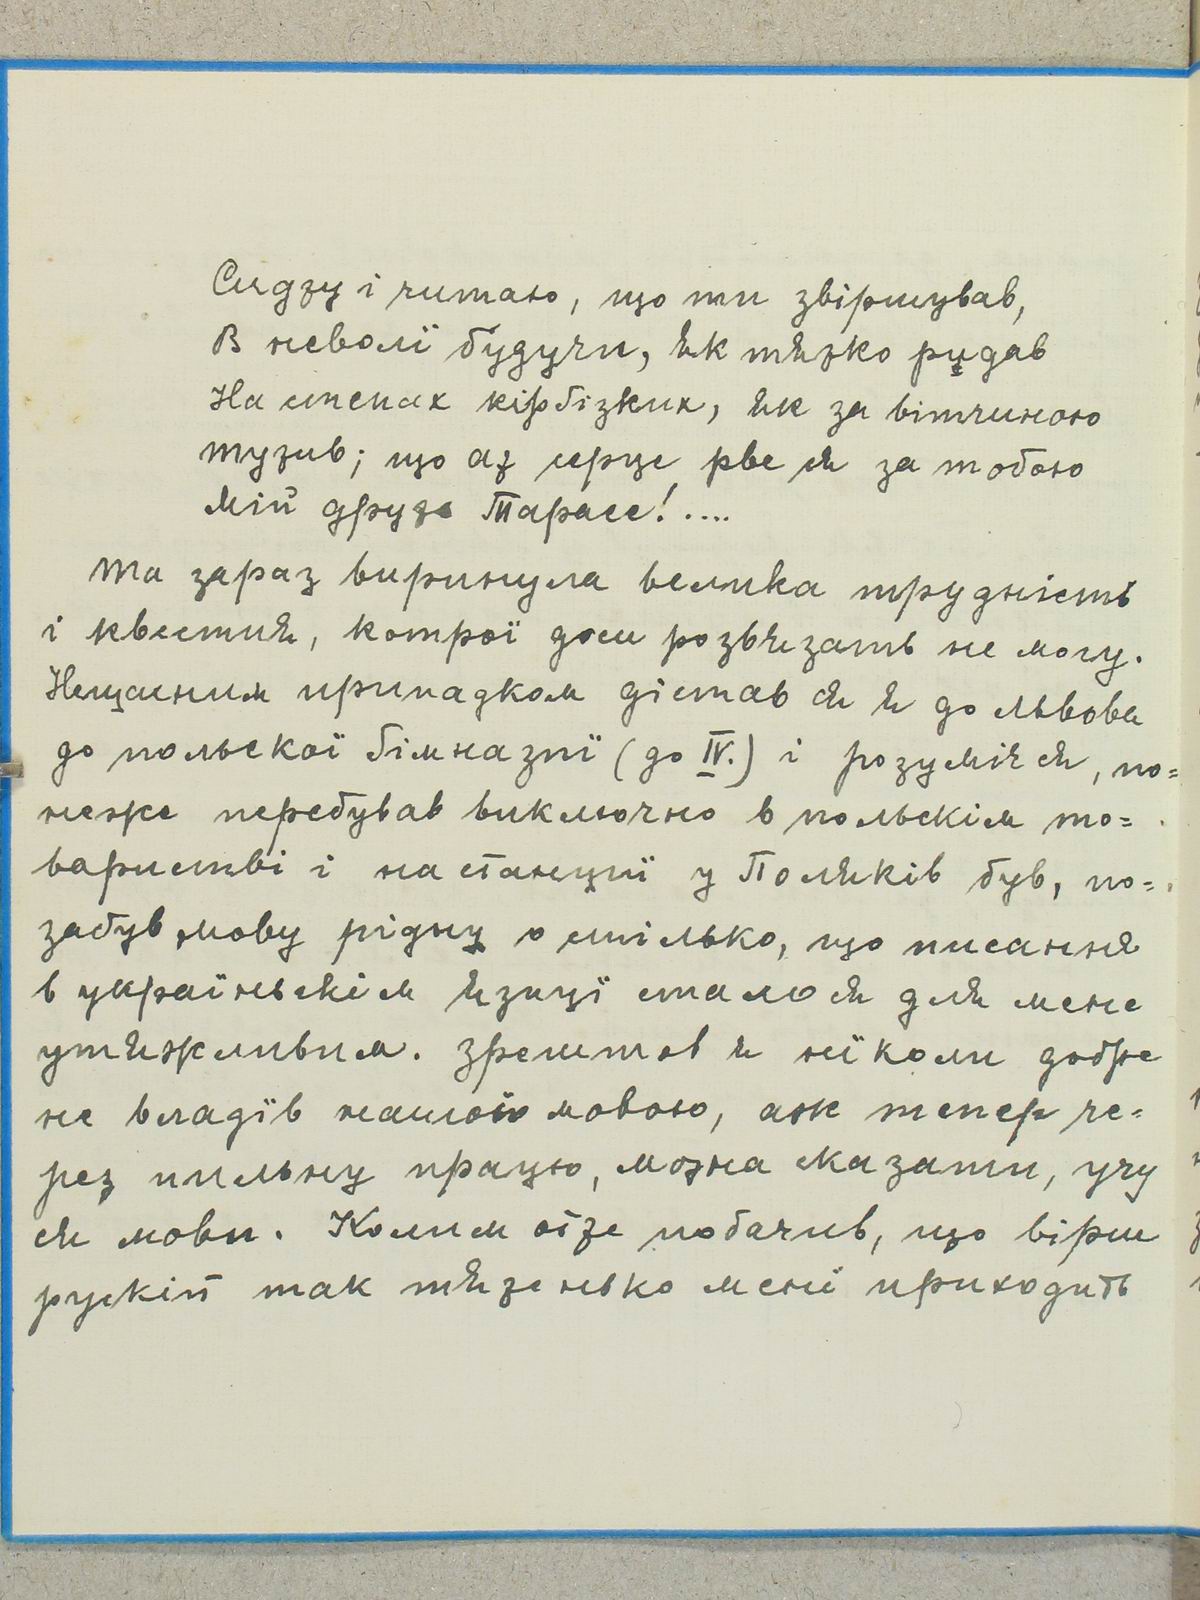 Сиджу і читаю, що ти звіршував,
В неволї будучи, як тяжко ридав
На степах кірґізких, як за вітчиною
тужив; що аж серце рве ся за тобою
Мій друже Тарасе!....
Та зараз виринула велика трудність
і квестия, котрої доси розвязать не могу.
Нещасним припадком дістав ся я до Львова
до польскої ґімназиї (до IV.) і розуміє ся, по=
неже перебував виключно в польскім то=
варистві і на станциї у Поляків був, по=
забув мову рідну о стілько, що писання
в україньскім язицї стало ся для мене
утяжливим. Зрештов я нїколи добре
не владїв нашою мовою, аж тепер че=
рез пильну працю, можна сказати, учу
ся мови. Колим отже побачив, що вірш
рускій так тяженько менї приходить